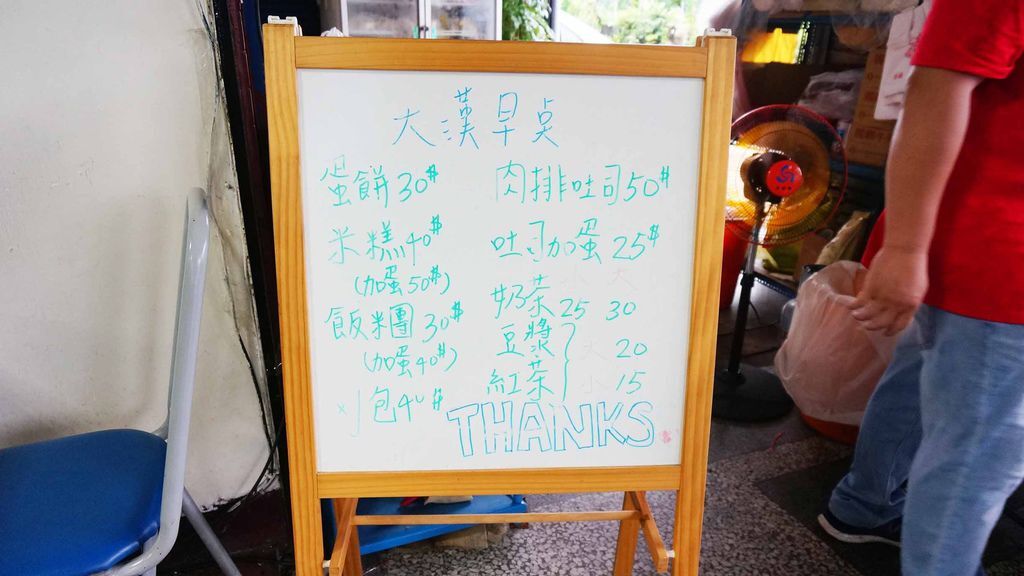 大漢早点
蛋餅30#
米糕40#
(加蛋50#)
飯糰30#
(加蛋40#)
小包40#
肉排吐司50#
吐司加蛋25#
小 大
奶茶 25 30
豆漿 大 20
紅茶 小 15
THANKS